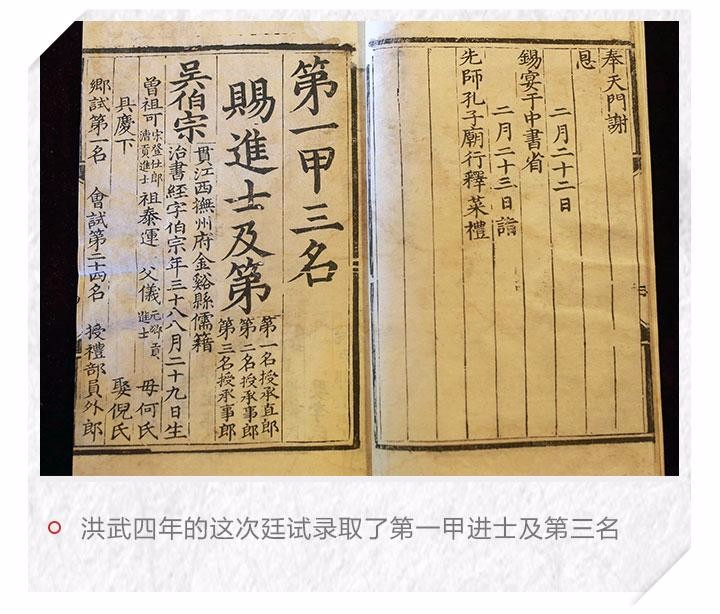 奉天門謝
恩
二月二十二日
錫宴于中書省
二月二十三日詣
先師孔子廟行釋菜禮
第一甲三名
賜進士及第
第一名授承直郎
第二名授承事郎
第三名授承事郎
吳伯宗
貫江西撫州府金谿縣儒籍
治書經字伯宗年三十八月二十九日生
曾祖可
宗登仕郎
漕貢進士
祖泰運
父儀
元鄉貢
進士
毋何氏
具慶下
娶倪氏
鄉試第一名
會試第二十四名
授禮部員外郎
洪武四年的这次廷试录取了第一甲进士及第三名